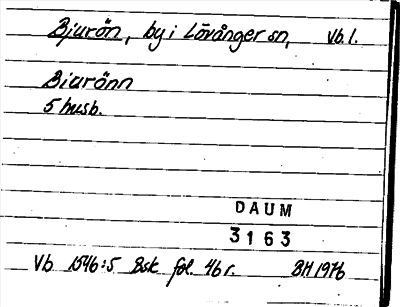 Bjurön, by i Lövånger sn, Vb. l.
Biurönn
5 husb.
DAUM
3163
Vb 1546:5 Bsk fol. 46 r. BH 1976